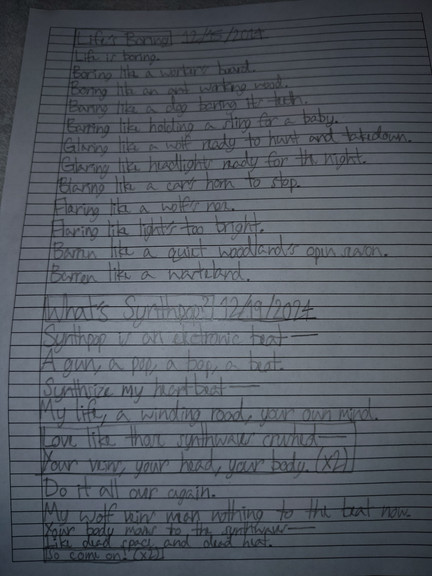 Life's Boring 12/15/2024
Life is boring.
Boring like a worker's board.
Boring like an ant working wood.
Baring like a dog baring its teeth.
Barring like holding a ring for a baby.
Glaring like a wolf ready to hunt and takedown.
Glaring like headlights ready for the night.
Blaring like a car's horn to stop.
Flaring like a wolf's
Flaring like light's too bright.
Barren like a quiet woodland's open
Barren like a wasteland.
What's Synthpop? 12/19/2024
Synthpop is an electronic beat—
A gun, a pop, a bop, a beat.
Synthsize my heartbeat—
My life, a winding road, your own mind.
Love like those synthwave crushed—
Your vein, your head, your body. (x2)
Do it all over again.
My wolf man nothing to the beat now.
Your body move to the synthwave—
Like dead space and dead heat.
So come on! (x2)